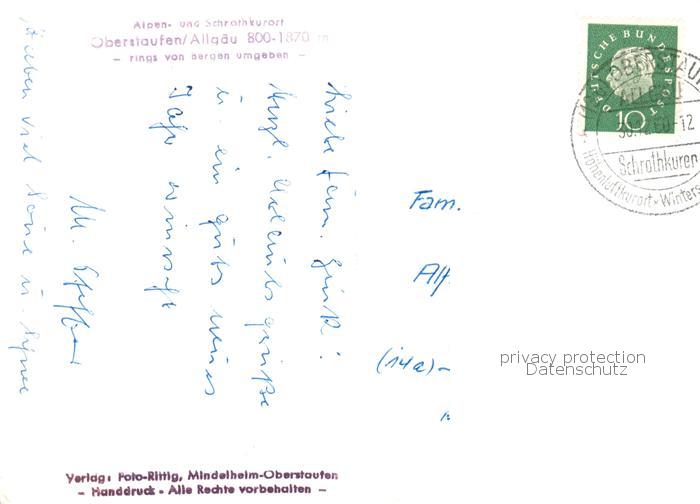 Alpen- und Schrothkurort
Oberstaufen/Allgäu 800-1870 m
– rings von Bergen umgeben –
DEUTSCHE BUNDESPOST
10
OBERSTAUFEN
ALLGÄU
-12
Schrothkuren
Höhenluftkurort - Winters
Liebe Fam.
Herzl. Weihnachtsgrüße
u. ein gutes neues
Jahr wünscht
M.
haben viel Sonne u. Schnee
Fam.
Alf.
(14a) –
privacy protection
Datenschutz
Verlag: Foto-Rittig, Mindelheim-Oberstaufen
– Handdruck - Alle Rechte vorbehalten –